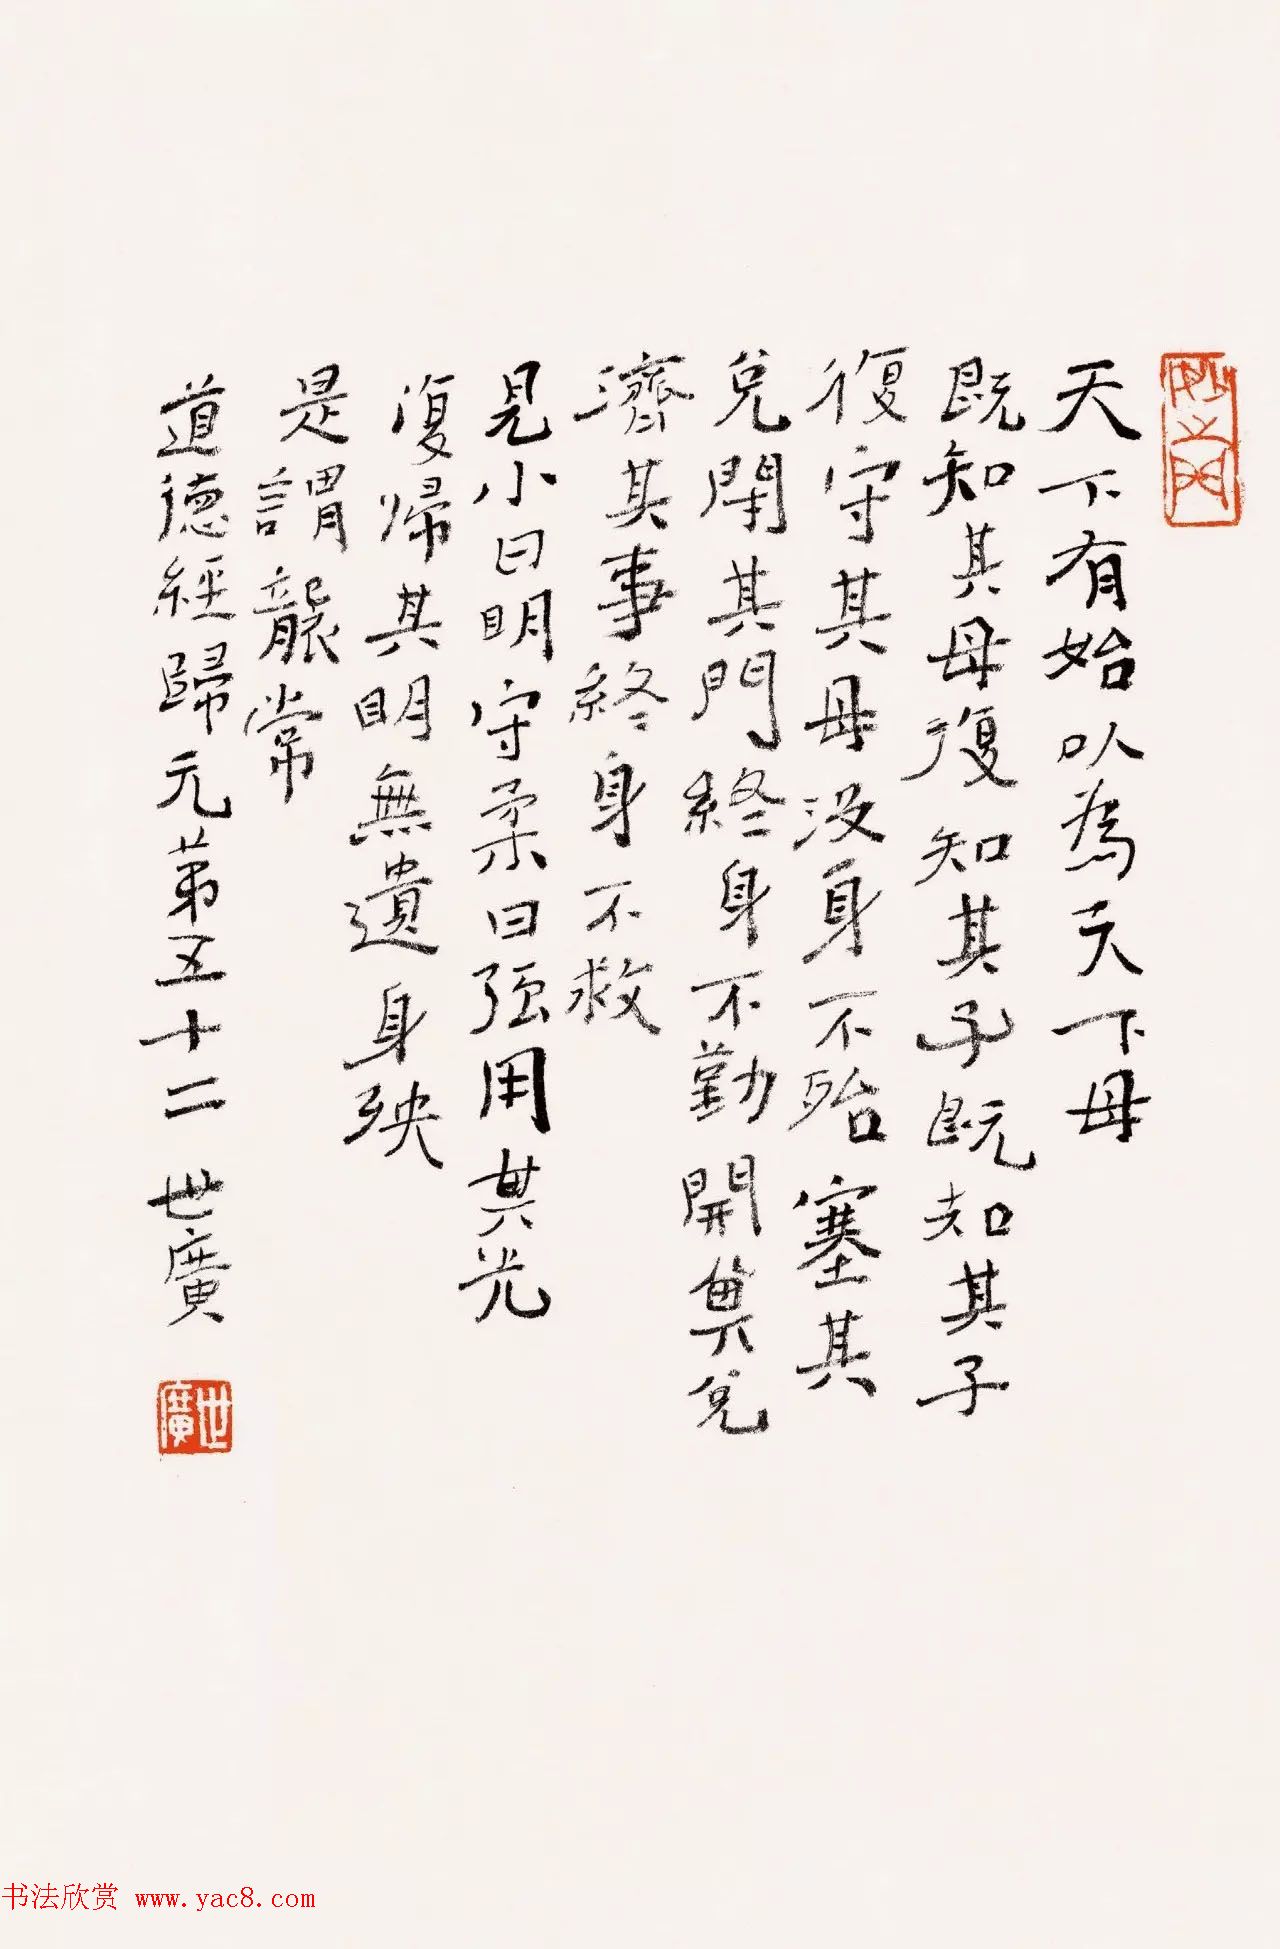 妙之門
天下有始以為天下母
既知其母復知其子既知其子
復守其母没身不殆塞其
兌閉其門終身不勤開其兌
濟其事終身不救
見小曰明守柔曰强用其光
復歸其明無遺身殃
是謂襲常
道德經歸元第五十二 世廣
世廣
书法欣赏 www.yac8.com